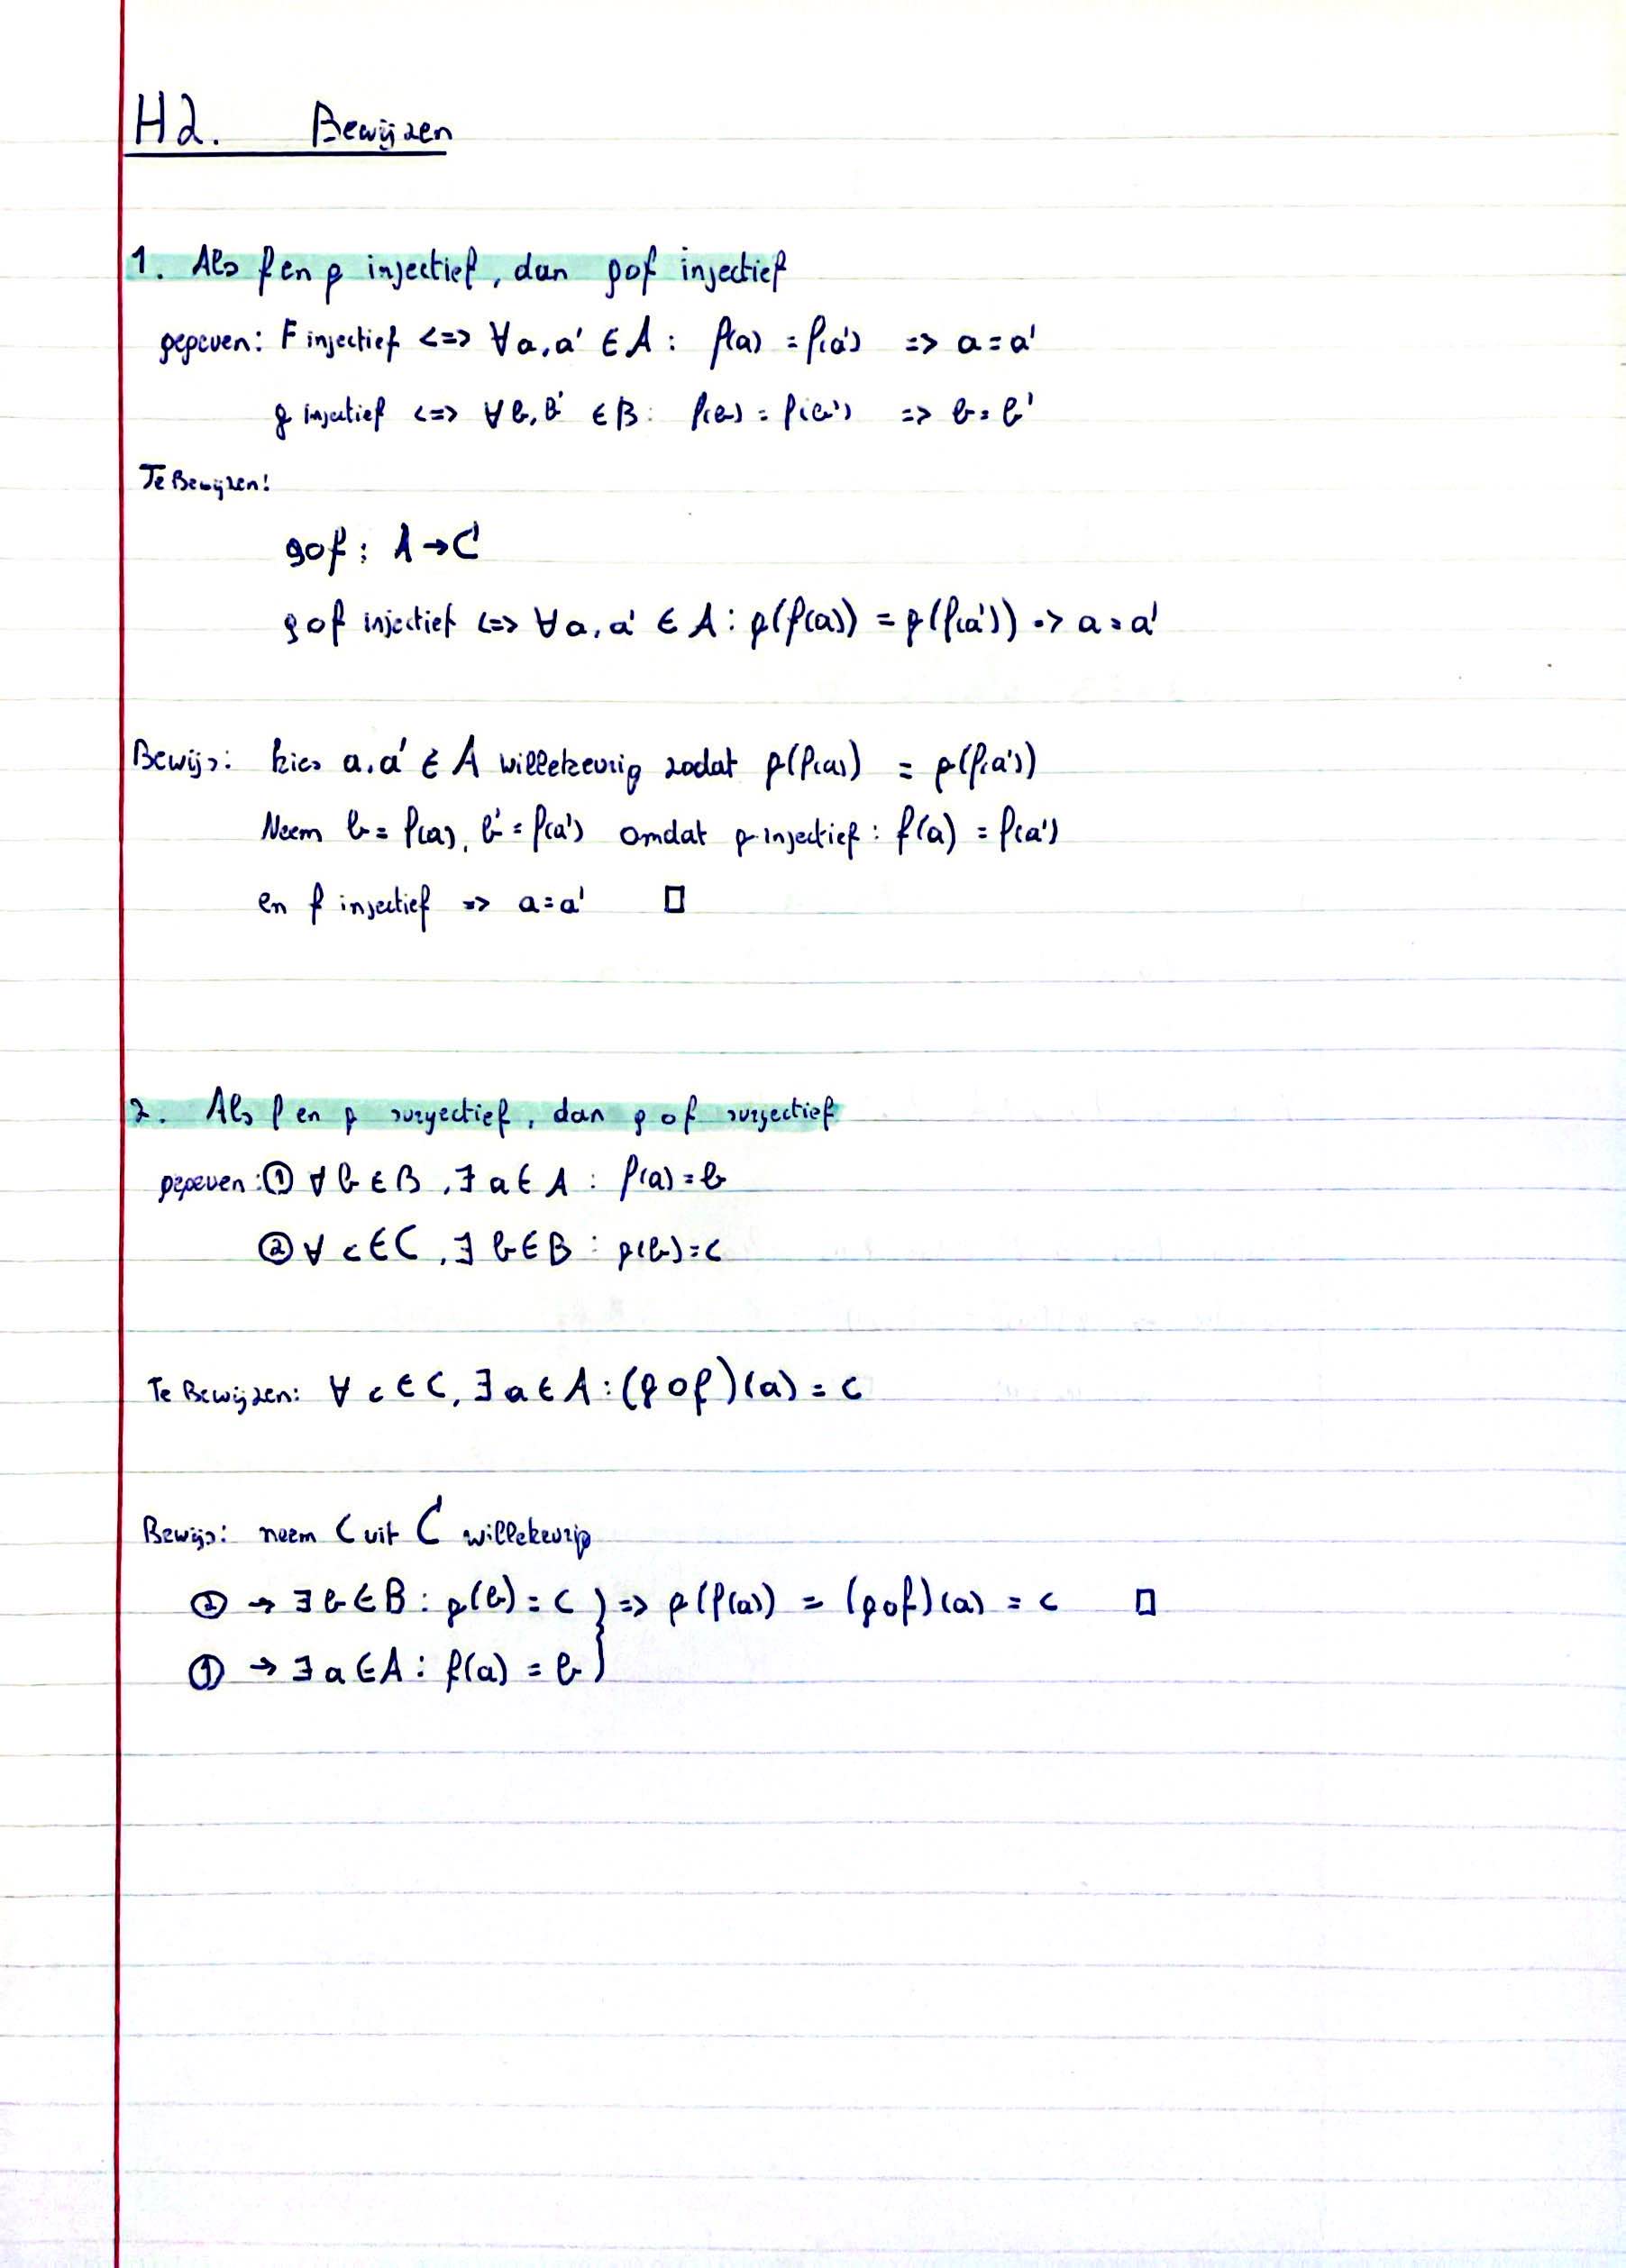 H2. Bewijzen
1. Als f en g injectief, dan gof injectief
gegeven: F injectief <=> ∀a,a' ∈ A : f(a) = f(a') => a = a'
g injectief <=> ∀b,b' ∈ B : f(b) = f(b') => b = b'
Te Bewijzen:
gof : A → C
gof injectief <=> ∀a,a' ∈ A : g(f(a)) = g(f(a')) => a = a'
Bewijs: kies a,a' ∈ A willekeurig zodat g(f(a)) = g(f(a'))
Neem b = f(a), b' = f(a') omdat g injectief : f(a) = f(a')
en f injectief => a = a' □
2. Als f en g surjectief, dan gof surjectief
gegeven : ① ∀ b ∈ B , ∃ a ∈ A : f(a) = b
② ∀ c ∈ C , ∃ b ∈ B : g(b) = c
Te Bewijzen: ∀ c ∈ C, ∃ a ∈ A : (gof)(a) = c
Bewijs: neem c uit C willekeurig
② → ∃ b ∈ B : g(b) = c } => g(f(a)) = (gof)(a) = c □
① → ∃ a ∈ A : f(a) = b